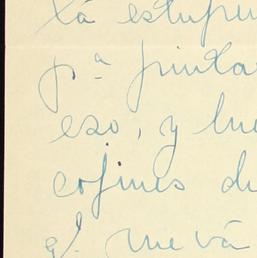 tá estupen
pª pinta
eso, y lue
cojines d
el nueva